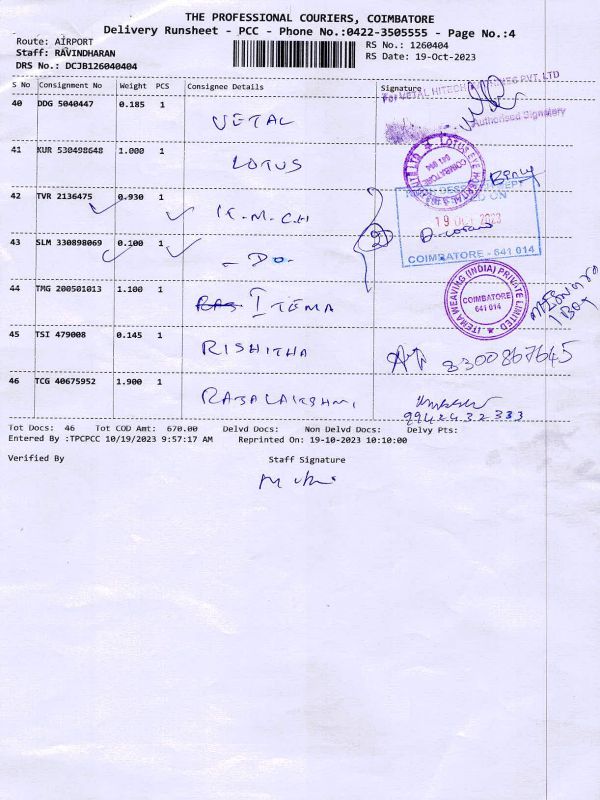 THE PROFESSIONAL COURIERS, COIMBATORE
Delivery Runsheet - PCC - Phone No.:0422-3505555 - Page No.:4
Route: AIRPORT
Staff: RAVINDHARAN
DRS No.: DCJB126040404
RS No.: 1260404
RS Date: 19-Oct-2023
S No Consignment No Weight PCS Consignee Details Signature
40 DDG 5040447 0.185 1 VETAL
For VETAL HITECH PVT. LTD
Authorised Signatory
41 KUR 530498648 1.000 1 LOTUS
LOTUS EYE HOSPITAL
COIMBATORE
641 014
42 TVR 2136475 0.930 1 K.M.C.H
ON
19 OCT 2023
43 SLM 330898069 0.100 1 - DO -
2
COIMBATORE - 641 014
44 TMG 200501013 1.100 1 ITEMA
ITEMA WEAVING (INDIA) PRIVATE LIMITED
COIMBATORE
641 014
1 Box
45 TSI 479008 0.145 1 RISHITHA
8300867645
46 TCG 40675952 1.900 1 RAJALAKSHMI
9942432333
Tot Docs: 46 Tot COD Amt: 670.00 Delvd Docs: Non Delvd Docs: Delvy Pts:
Entered By :TPCPCC 10/19/2023 9:57:17 AM Reprinted On: 19-10-2023 10:10:00
Verified By Staff Signature